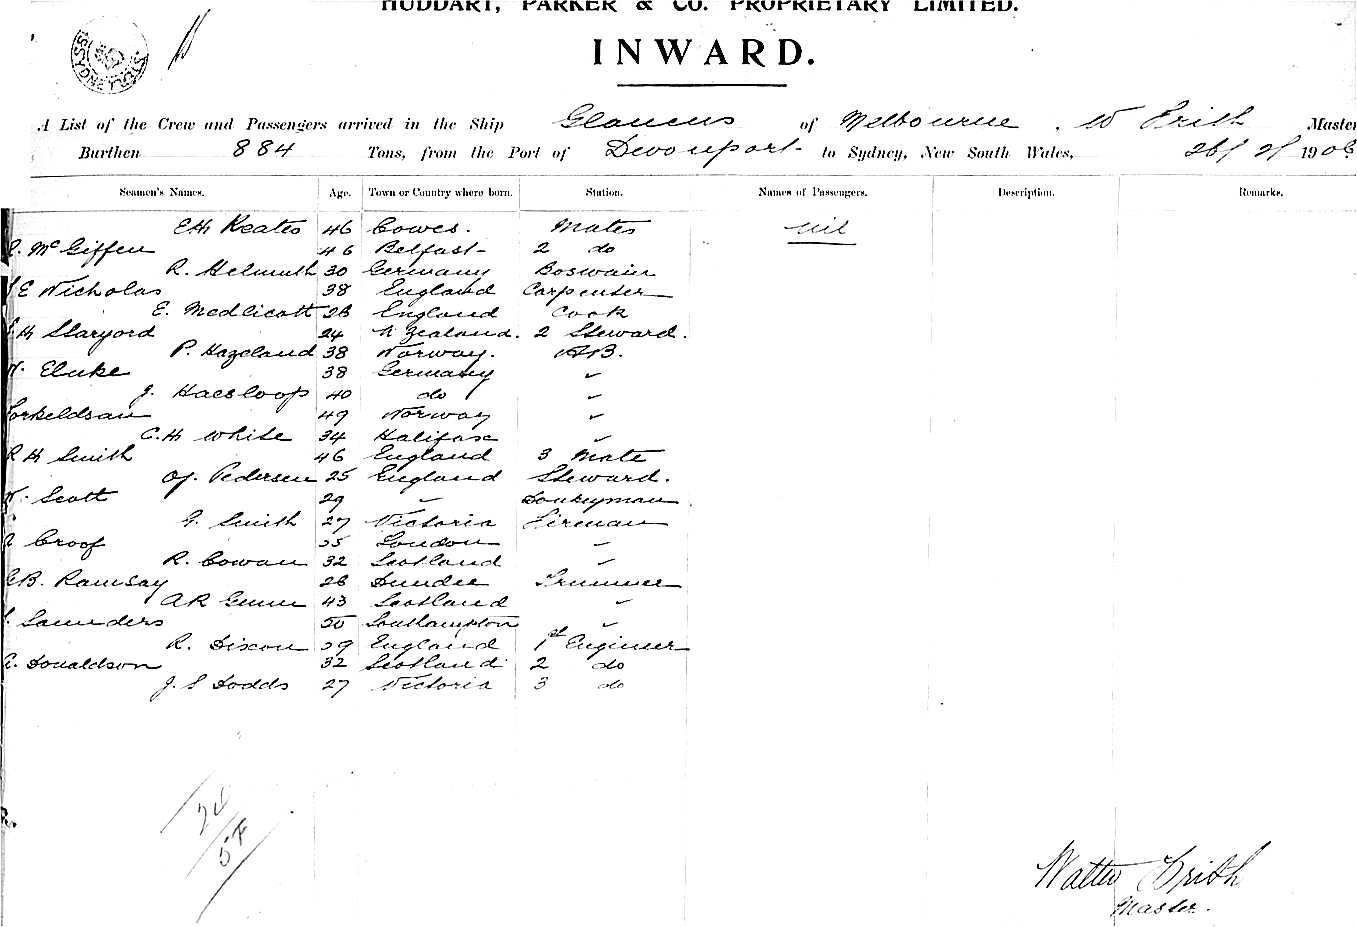 HUDDART, PARKER & CO. PROPRIETARY LIMITED.
INWARD.
A List of the Crew and Passengers arrived in the Ship Glaucus of Melbourne. W Frith Master
Burthen 884 Tons, from the Port of Devonport to Sydney, New South Wales, 26/2/1906
Seamen's Names. Age. Town or Country where born. Station. Names of Passengers. Description. Remarks.
EH Keates 46 Cowes. Mates nil
McGiffen 46 Belfast 2 do
R. Helmuth 30 Germany Boswain
E Nicholas 38 England Carpenter
E. Medlicott 28 England Cook
H Staryord 24 N Zealand. 2 Steward.
P. Hazeland 38 Norway. AB.
W. Eluke 38 Germany "
J. Haesloop 40 do "
Torkeldsan 49 Norway "
C.H White 34 Halifax "
R H Smith 46 England 3 Mate
Of. Pedersen 25 England Steward.
W. Scott 29 " Donkeyman
G. Smith 27 Victoria Fireman
Croof 35 London "
R. Cowan 32 Scotland "
B. Ramsay 26 Dundee Trimmer
AR Gunn 43 Scotland "
Saunders 50 Southampton "
R. Dixon 39 England 1st Engineer
Donaldson 32 Scotland 2 do
J. S Dodds 27 Victoria 3 do
Walter Frith
Master.